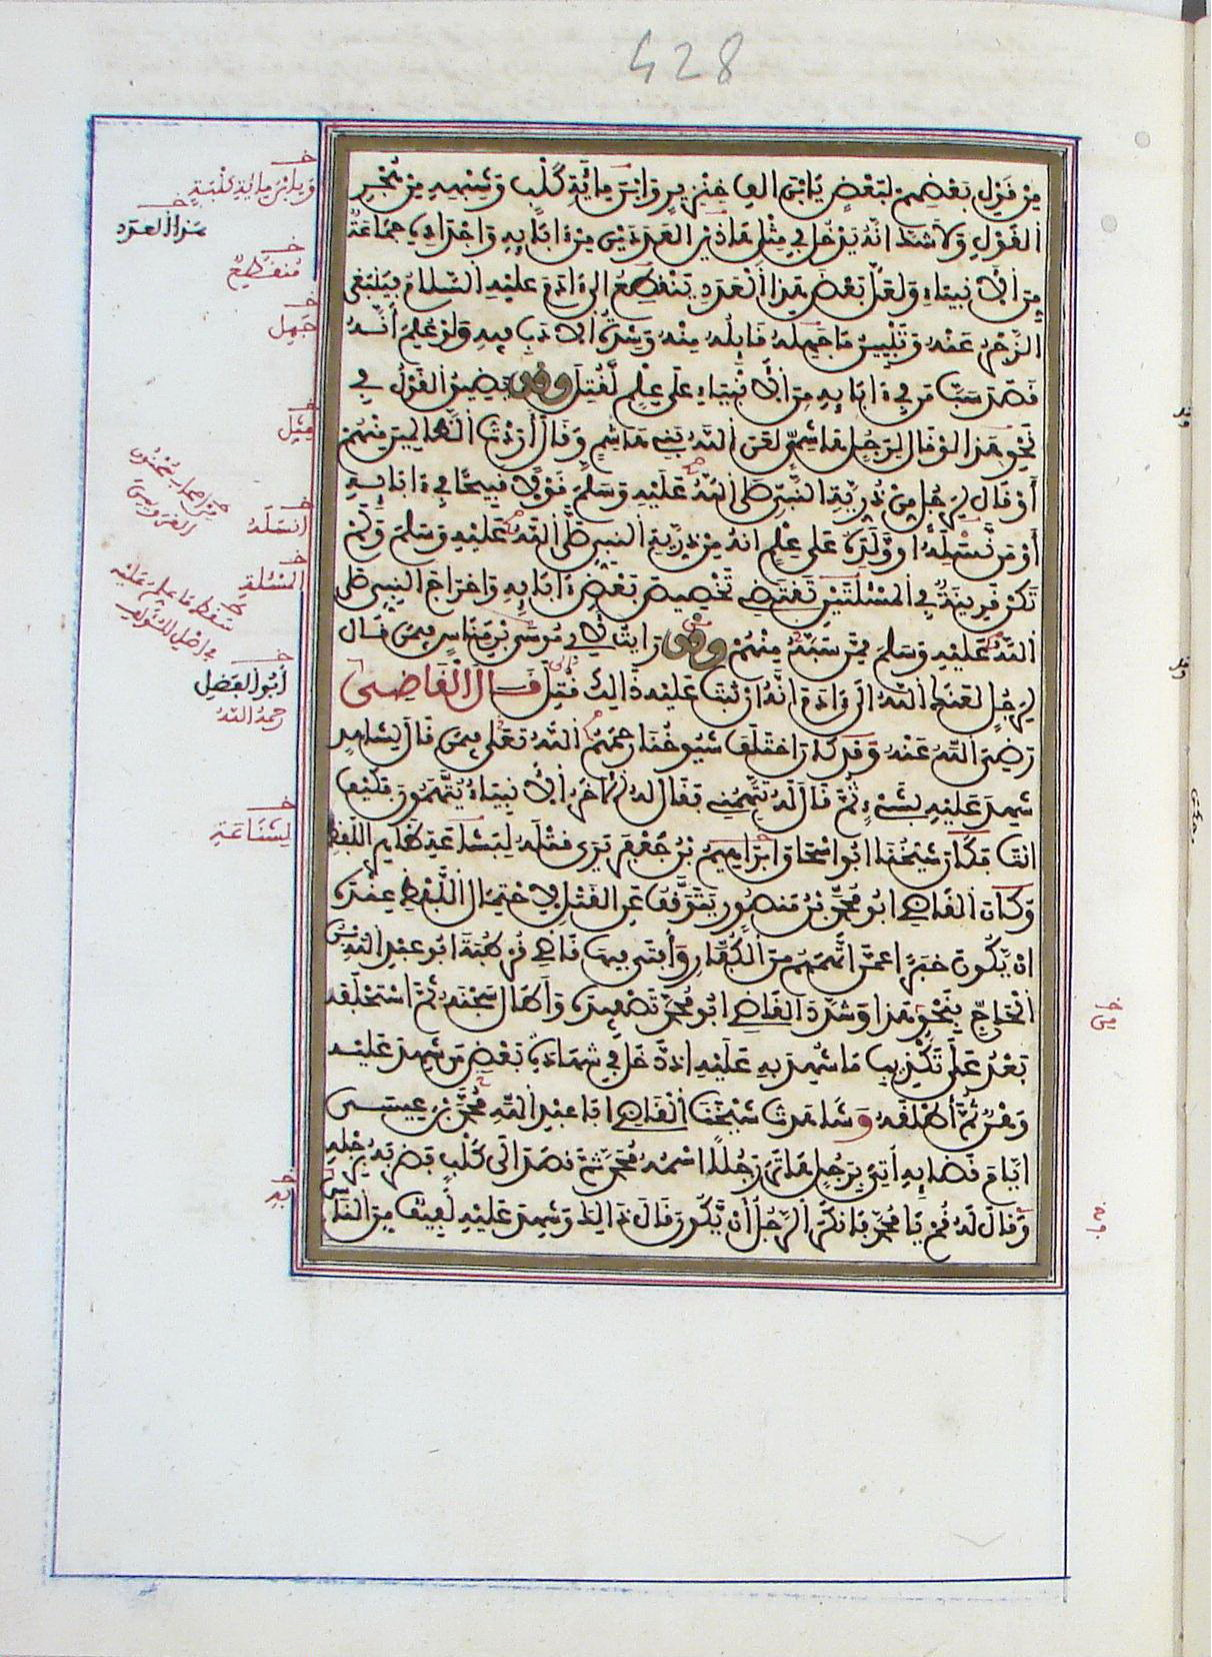 428
مِنْ قَوْلِ بَعْضِهِمْ لِبَعْضٍ يَا ابْنَ أَلْفِ خِنْزِيرٍ وَابْنَ مِائَةِ كَلْبٍ وَشِبْهِهِ مِنْ هُجْرِ
الْقَوْلِ وَلَا شَكَّ أَنَّهُ يَدْخُلُ فِي مِثْلِ هَاذَيْنِ الْعَدَدَيْنِ مِنْ ءَابَائِهِ وَأَجْدَادِهِ جَمَاعَةٌ
مِنَ الْأَنْبِيَاءِ وَلَعَلَّ بَعْضَ هَذَا الْعَدَدِ يَنْقَطِعُ إِلَى ءَادَمَ عَلَيْهِ السَّلَامُ فَيَنْبَغِي
الزَّجْرُ عَنْهُ وَتَبْيِينُ مَا جَهِلَهُ قَائِلُهُ مِنْهُ وَشِدَّةُ الْأَدَبِ فِيهِ وَلَوْ عُلِمَ أَنَّهُ
قَصَدَ سَبَّ مَنْ فِي ءَابَائِهِ مِنَ الْأَنْبِيَاءِ عَلَى عِلْمٍ لَقُتِلَ وَقَدْ يُضَيَّقُ الْقَوْلُ فِي
نَحْوِ هَذَا لَوْ قَالَ لِرَجُلٍ هَاشِمِيٍّ لَعَنَ اللَّهُ بَنِي هَاشِمٍ وَقَالَ أَرَدْتُ الظَّالِمِينَ مِنْهُمْ
أَوْ قَالَ لِرَجُلٍ مِنْ ذُرِّيَّةِ النَّبِيِّ صَلَّى اللَّهُ عَلَيْهِ وَسَلَّمَ قَوْلًا قَبِيحًا فِي ءَابَائِهِ
أَوْ مَنْ نَسْلِهِ أَوْ وَلَدِهِ عَلَى عِلْمٍ أَنَّهُ مِنْ ذُرِّيَّةِ النَّبِيِّ صَلَّى اللَّهُ عَلَيْهِ وَسَلَّمَ وَلَمْ
تَكُنْ قَرِينَةٌ فِي الْمَسْئَلَتَيْنِ تَقْتَضِي تَخْصِيصَ بَعْضِ ءَابَائِهِ وَإِخْرَاجَ النَّبِيِّ صَلَّى
اللَّهُ عَلَيْهِ وَسَلَّمَ مِمَّنْ سَبَّهُ مِنْهُمْ وَقَدْ رَأَيْتُ لِأَبِي مُوسَى بْنِ مَنَاسٍ فِيمَنْ قَالَ
لِرَجُلٍ لَعَنَكَ اللَّهُ إِلَى ءَادَمَ أَنَّهُ إِنْ ثَبَتَ عَلَيْهِ ذَالِكَ قُتِلَ قَالَ الْقَاضِي
رَضِيَ اللَّهُ عَنْهُ وَقَدْ كَانَ اخْتَلَفَ شُيُوخُنَا رَحِمَهُمُ اللَّهُ تَعَالَى فِيمَنْ قَالَ لِشَاهِدٍ
شَهِدَ عَلَيْهِ بِشَيْءٍ ثُمَّ قَالَ لَهُ تَتَّهِمُنِي فَقَالَ لَهُ الْآخَرُ الْأَنْبِيَاءُ يُتَّهَمُونَ فَكَيْفَ
أَنْتَ فَكَانَ شَيْخُنَا أَبُو إِسْحَاقَ إِبْرَاهِيمُ بْنُ جَعْفَرٍ يَرَى قَتْلَهُ لِبَشَاعَةِ ظَاهِرِ اللَّفْظِ
وَكَانَ الْقَاضِي أَبُو مُحَمَّدِ بْنُ مَنْصُورٍ يَتَوَقَّفُ عَنِ الْقَتْلِ لِاحْتِمَالِ اللَّفْظِ عِنْدَهُ
أَنْ يَكُونَ خَبَرًا عَمَّنِ اتَّهَمَهُمْ مِنَ الْكُفَّارِ وَأَفْتَى فِيهَا قَاضِي قُرْطُبَةَ أَبُو عَبْدِ اللَّهِ بْنُ
الْحَاجِّ بِنَحْوِ هَذَا وَشَدَّدَ الْقَاضِي أَبُو مُحَمَّدٍ تَصْفِيدَهُ وَأَطَالَ سِجْنَهُ ثُمَّ اسْتَحْلَفَهُ
بَعْدُ عَلَى تَكْذِيبِ مَا شُهِدَ بِهِ عَلَيْهِ إِذْ دَخَلَ فِي شَهَادَةِ بَعْضِ مَنْ شَهِدَ عَلَيْهِ
وَهْنٌ ثُمَّ أَطْلَقَهُ وَشَاهَدْتُ شَيْخَنَا الْقَاضِي أَبَا عَبْدِ اللَّهِ مُحَمَّدَ بْنَ عِيسَى
أَيَّامَ قَضَائِهِ أُتِيَ بِرَجُلٍ هَاتَرَ رَجُلًا اسْمُهُ مُحَمَّدٌ ثُمَّ قَصَدَ إِلَى كَلْبٍ فَضَرَبَهُ بِرِجْلِهِ
وَقَالَ لَهُ قُمْ يَا مُحَمَّدُ فَأَنْكَرَ الرَّجُلُ أَنْ يَكُونَ قَالَ ذَالِكَ وَشَهِدَ عَلَيْهِ لَفِيفٌ مِنَ النَّاسِ
وَيَا ابْنَ مِائَةِ كَلْبَةٍ
هَذَا الْعَدَدِ
مُنْقَطِعٌ
جَهِلَ
مِثْلِ
أَنْسَلَهُ
الْمَسْئَلَةِ
سَقَطَ مَا عَلِمَ عَلَيْهِ
فِي أَصْلِ الْمُؤَلِّفِ
أَبُو الْفَضْلِ
رَحِمَهُ اللَّهُ
لِشَنَاعَةِ
بِهِ